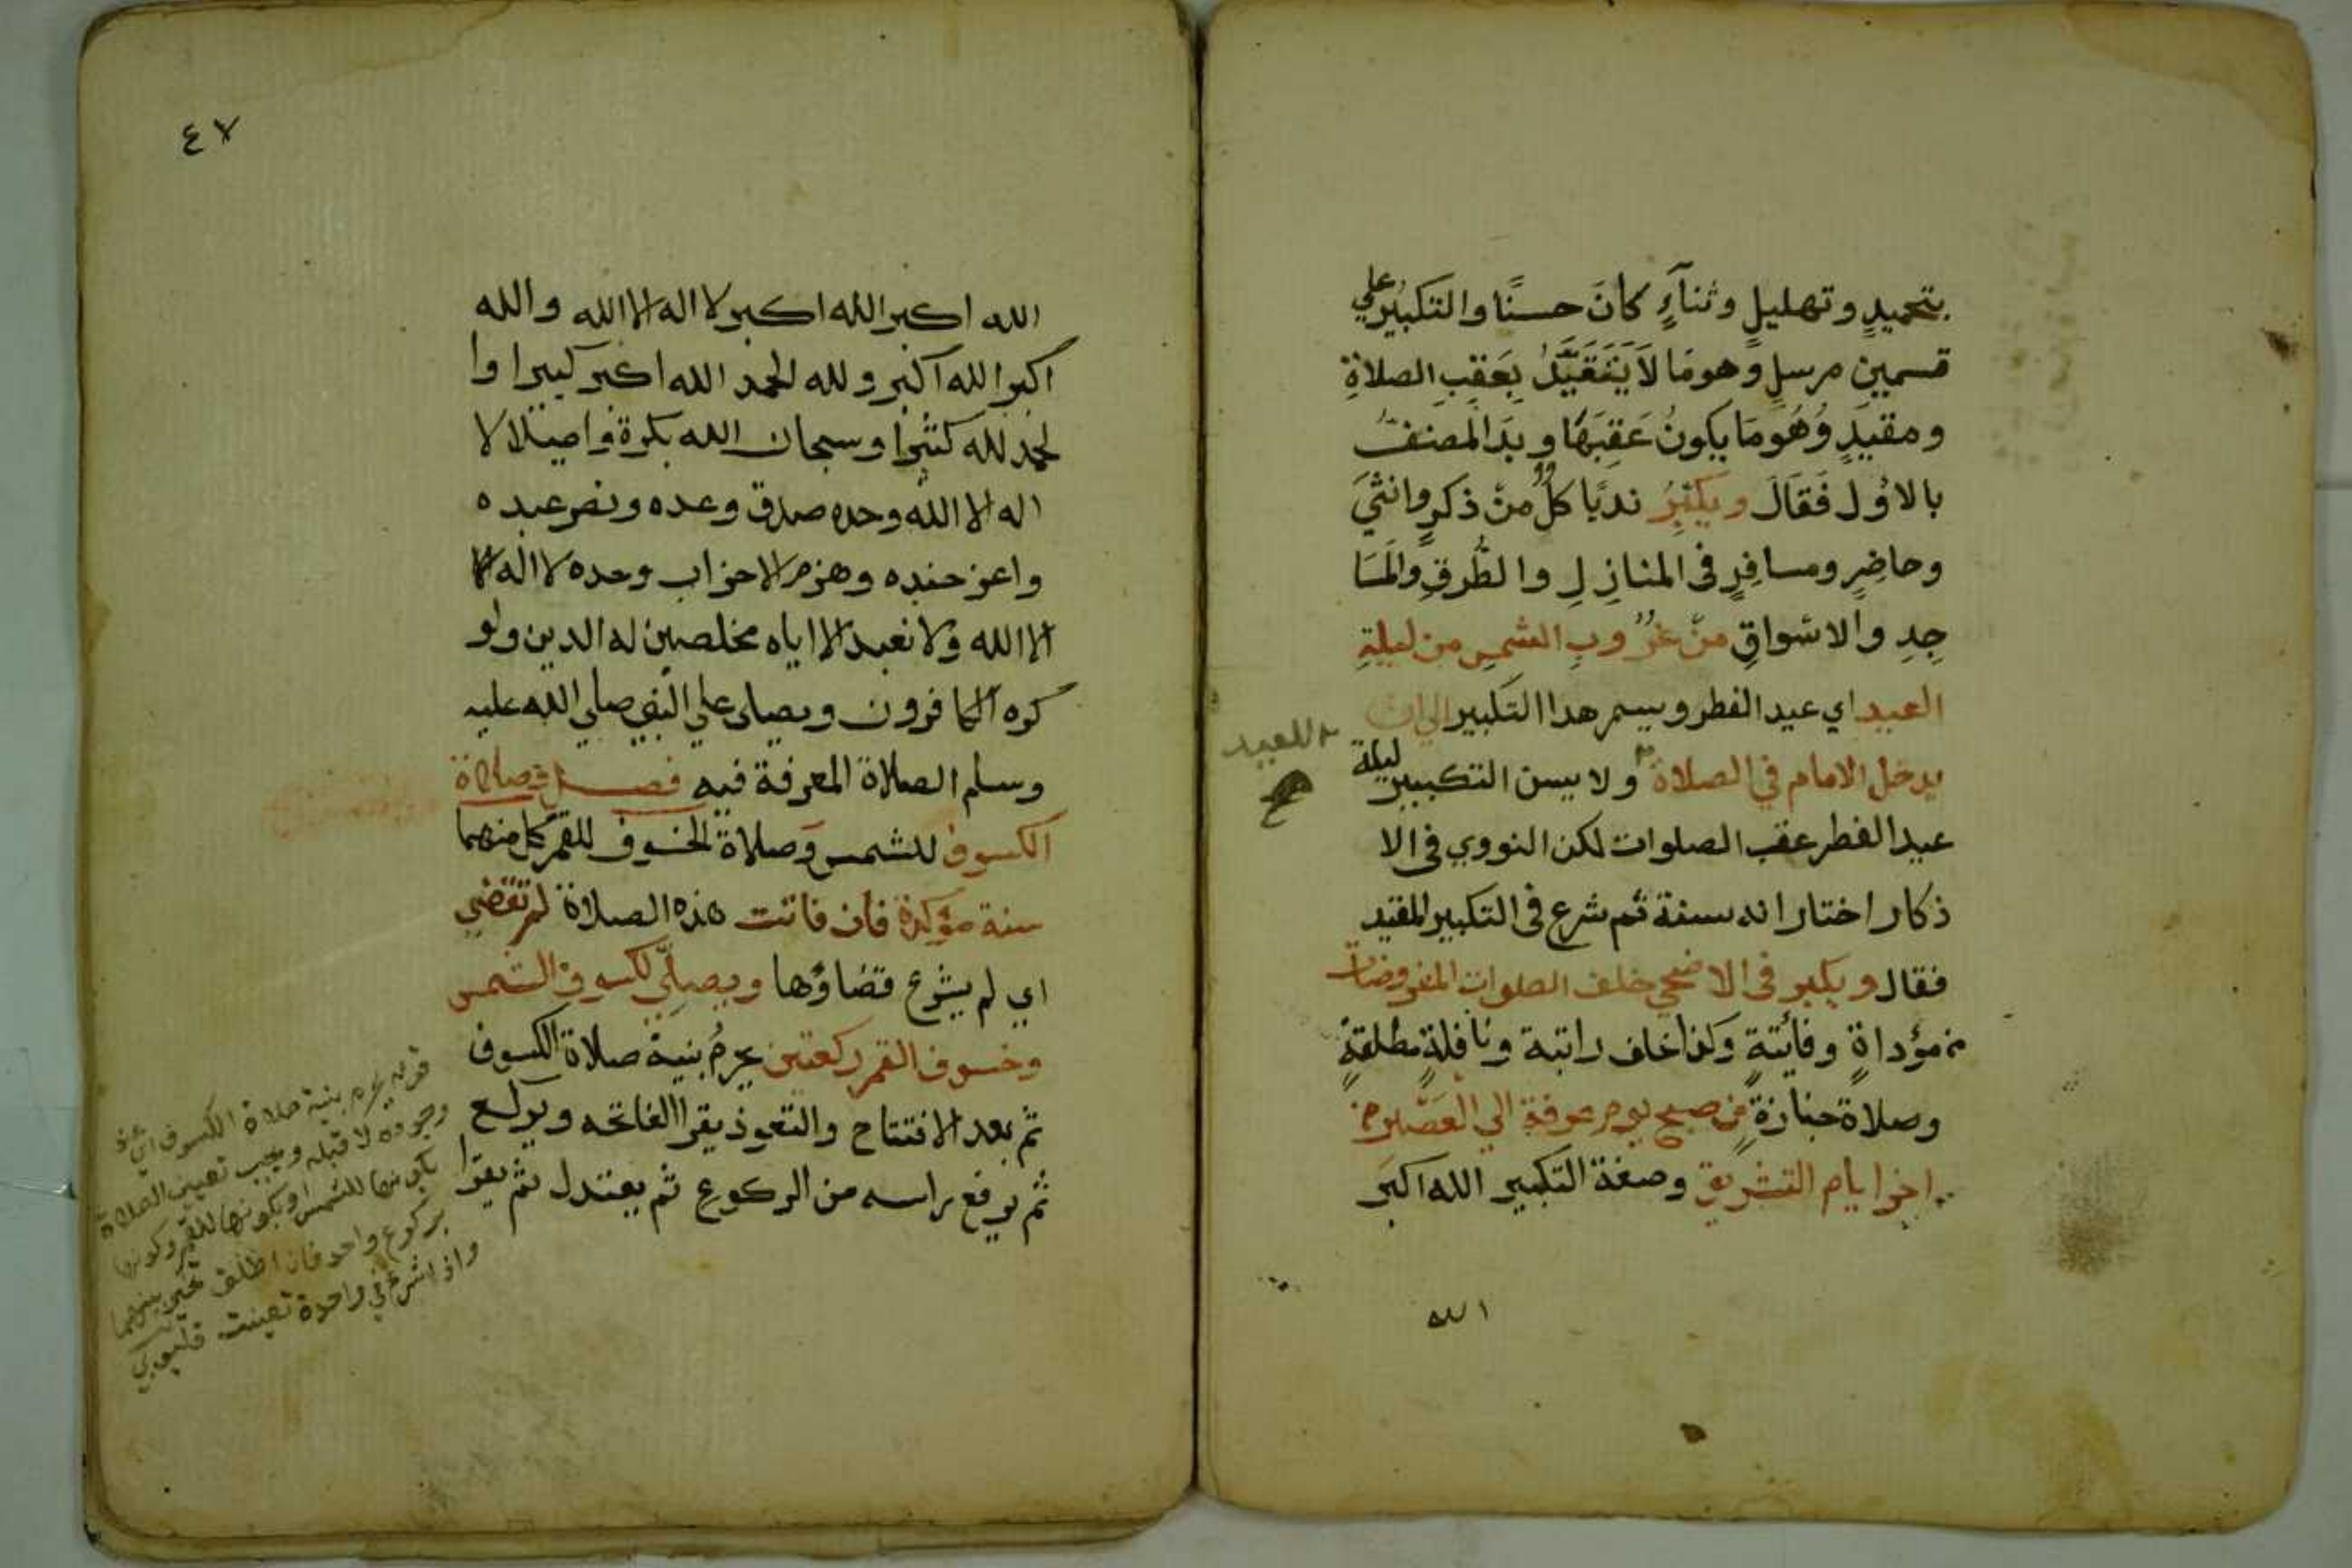 بتحميدٍ وتهليلٍ وثنآءٍ كانَ حسنًا والتكبيُر علي
قسمين مرسلٍ وهومَا لاَيَتَقَيَّدُ بِعَقِبِ الصلاةِ
ومقيدٍ وَهُومَا يكونُ عَقِبَهَا وبدَا المصنفُ
بالاوُل فَقَالَ ويكبِرُ ندبًا كلُّ منْ ذكرٍ وانثيَ
وحاضِرٍ ومسافِرٍ في المنازِلِ والطُّرقِ والمسَا
جِدِ والاسْواقِ منْ غرُوبِ الشمسِ من ليلةِ
العيد اي عيد الفطر ويستمر هذا التكبير الي ان
يدخل الامام في الصلاة ولا يسن التكبير ليلة
للعيد
عيد الفطر عقب الصلوات لكن النووي في الا
ذكار اختار انه سنة ثم شرع في التكبير المقيد
فقال ويكبر في الاضحي خلف الصلوات المفروضات
من مؤداةٍ وفائتةٍ وكذا خلف راتبة ونافلةٍ مطلقةٍ
وصلاة جنازةٍ من صبح يوم عرفة الي العَصْر من
اخر ايام التشريق وصفة التكبير الله اكبرَ
الله
٤٧
الله اكبر الله اكبر لا اله الا الله والله
اكبر الله اكبر ولله الحمد الله اكبر كبيرا وا
لحمد لله كثيرا وسبحان الله بكرة واصيلا لا
اله الا الله وحده صدق وعده ونصر عبده
واعز جنده وهزم الاحزاب وحده لا اله
الا الله ولا نعبد الا اياه مخلصين له الدين ولو
كره الكافرون ويصلي علي النبي صلي الله عليه
وسلم الصلاة المعرفة فيه فصل في صلاة
الكسوف للشمس وصلاة الخسوف للقمر كل منهما
سنة مؤكدة فان فاتت هذه الصلاة لم تقضي
اي لم يشرع قضاؤها ويصلي لكسوف الشمس
وخسوف القمر ركعتين يحرمُ بنية صلاة الكسوف
ثم بعد الافتتاح والتعوذ يقرا الفاتحه ويركع
ثم يرفع راسه من الركوع ثم يعتدل ثم يقرا
قوله يحرم بنية صلاة الكسوف اي
وجوده لا قبله ويجب تعيين الصلاة
بكونها للشمس او بكونها للقمر وكونها
بركوع واحد فان اطلق تخير بينهما
واذا شرع في واحدة تعينت قليوبي